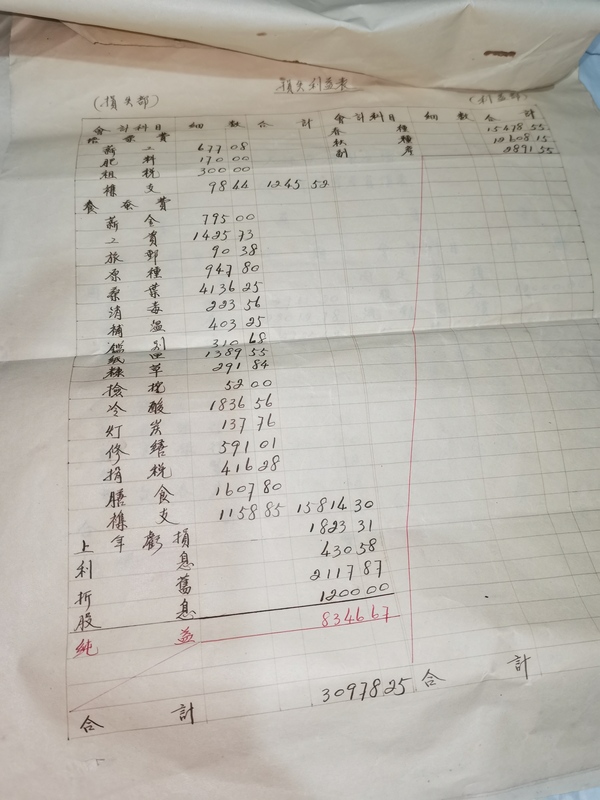 損失利益表
(損失部) (利益部)
會計科目 細數 合計 會計科目 細數 合計
培桑費 春種 15478 55
薪工 677 08 秋種 12608 15
肥料 170 00 副產 2891 55
租稅 300 00
雜支 98 44 1245 52
養蚕費
薪金 795 00
工資 1425 73
旅郵 90 38
原種 947 80
桑葉 4136 25
消毒 223 56
補溫 403 25
鑑別 310 68
紙 1389 55
草 291 84
檢 52 00
冷酸 1836 56
灯炭 137 76
修繕 591 01
捐稅 416 28
膳食 1607 80
雜支 1158 85 15814 30
上年虧損 1823 31
利息 430 58
折舊 2117 87
股息 1200 00
純益 8346 67
合計 30978 25 合計